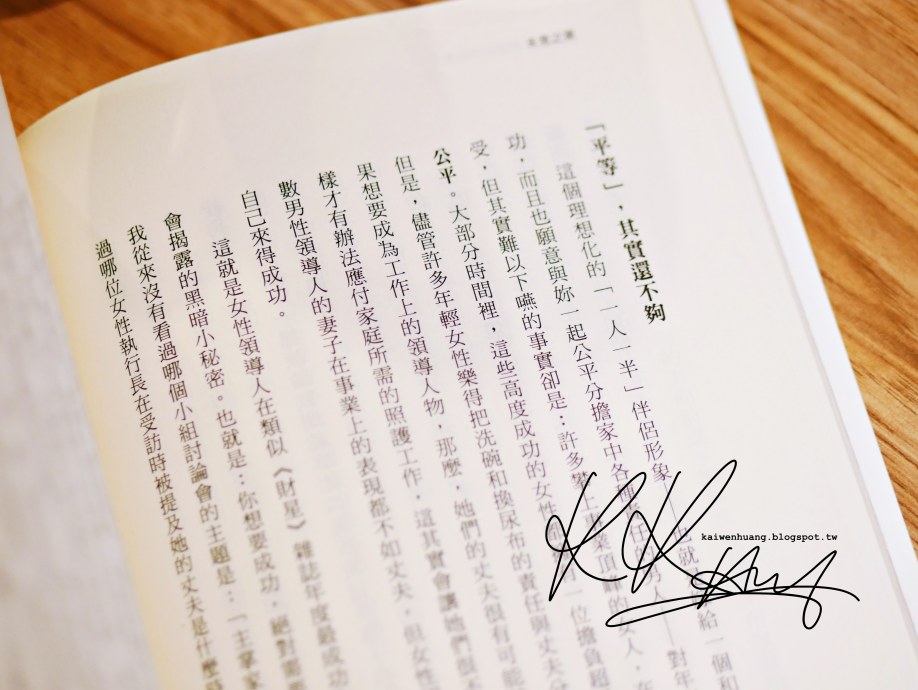 未竟之業
「平等」，其實還不夠
這個理想化的「一人一半」伴侶形象——也就是給一個和
功，而且也願意與妳一起公平分擔家中各種責任的男人——對年
受，但其實難以下嚥的事實卻是：許多攀上事業頂峰的女人，在
公平。大部分時間裡，這些高度成功的女性一位擔負超
但是，儘管許多年輕女性樂得把洗碗和換尿布的責任與丈夫分
果想要成為工作上的領導人物，那麼，她們的丈夫很有可能
樣才有辦法應付家庭所需的照護工作，這其實會讓她們很
數男性領導人的妻子在事業上的表現都不如丈夫，但女性
自己來得成功。
這就是女性領導人在類似《財星》雜誌年度最成功
會揭露的黑暗小秘密。也就是：你想要成功，絕對需
我從來沒有看過哪個小組討論會的主題是：「主掌家
過哪位女性執行長在受訪時被提及她的丈夫是什麼
kaiwenhuang.blogspot.tw